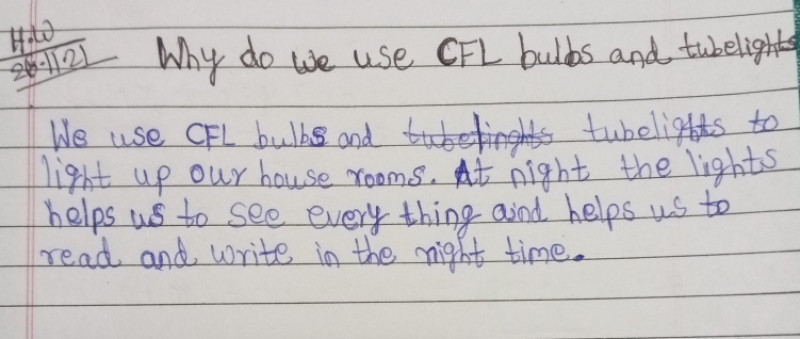 H.W
26.11.21
Why do we use CFL bulbs and tubelights
We use CFL bulbs and tubelinghts tubelights to
light up our house rooms. At night the lights
helps us to see every thing aind helps us to
read and write in the night time.